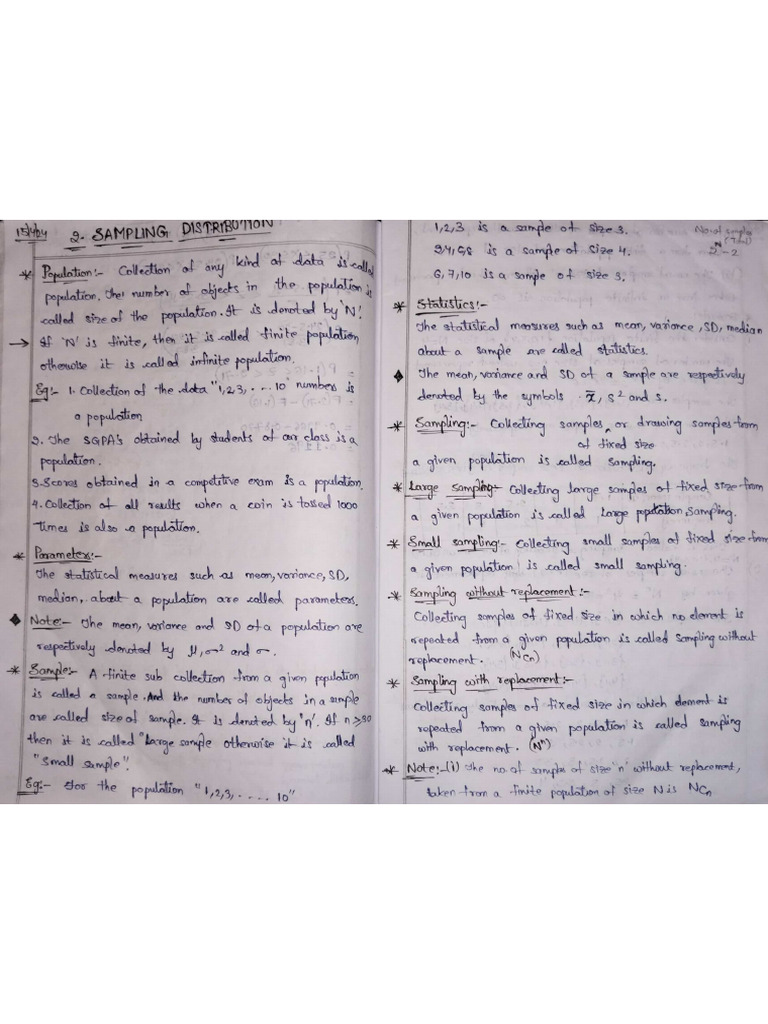 15/4/24
2. SAMPLING DISTRIBUTION
* Population:- Collection of any kind of data is called
population. The number of objects in the population is
called size of the population. It is denoted by 'N'.
→ If 'N' is finite, then it is called finite population
otherwise it is called infinite population.
Eg:- 1. Collection of the data "1,2,3, .... 10" numbers is
a population
2. The SGPA's obtained by students of our class is a
population.
3. Scores obtained in a competitive exam is a population.
4. Collection of all results when a coin is tossed 1000
times is also a population.
* Parameters:-
The statistical measures such as mean, variance, SD,
median, about a population are called parameters.
◆ Note:- The mean, variance and SD of a population are
respectively denoted by μ, σ² and σ.
* Sample:- A finite sub collection from a given population
is called a sample. And the number of objects in a sample
are called size of sample. It is denoted by 'n'. If n ≥ 30
then it is called "Large sample otherwise it is called
"Small sample".
Eg:- For the population "1,2,3, ..... 10"
1,2,3 is a sample of size 3.
2,4,6,8 is a sample of size 4.
6,7,10 is a sample of size 3.
No. of samples
* Statistics:-
The statistical measures such as mean, variance, SD, median
about a sample are called statistics.
◆ The mean, variance and SD of a sample are respectively
denoted by the symbols x̄, s² and s.
* Sampling:- Collecting samples or drawing samples from
of fixed size
a given population is called sampling.
* Large sampling- Collecting large samples of fixed size from
a given population is called Large sampling.
* Small sampling:- Collecting small samples of fixed size from
a given population is called small sampling.
* Sampling without replacement:-
Collecting samples of fixed size in which no element is
repeated from a given population is called sampling without
replacement. (NCn)
* Sampling with replacement:-
Collecting samples of fixed size in which element is
repeated from a given population is called sampling
with replacement. (Nⁿ)
* Note:- (i) The no. of samples of size 'n' without replacement,
taken from a finite population of size N is NCn